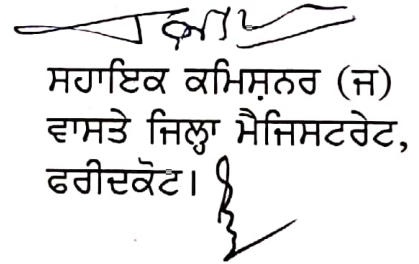 ਸਹਾਇਕ ਕਮਿਸ਼ਨਰ (ਜ)
ਵਾਸਤੇ ਜਿਲ੍ਹਾ ਮੈਜਿਸਟਰੇਟ,
ਫਰੀਦਕੋਟ।